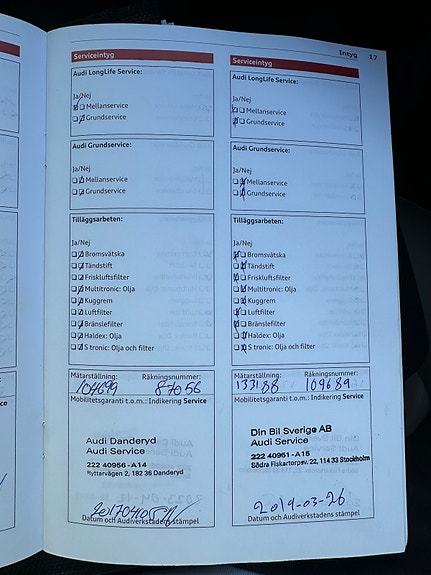 Intyg 17
Serviceintyg
Audi LongLife Service:
Ja/Nej
Mellanservice
Grundservice
Audi Grundservice:
Ja/Nej
Mellanservice
Grundservice
Tilläggsarbeten:
Ja/Nej
Bromsvätska
Tändstift
Friskluftsfilter
Multitronic: Olja
Kuggrem
Luftfilter
Bränslefilter
Haldex: Olja
S tronic: Olja och filter
Mätarställning: Räkningsnummer:
104699 87056
Mobilitetsgaranti t.o.m.: Indikering Service
Audi Danderyd
Audi Service
222 40956 - A14
Ryttarvägen 2, 182 36 Danderyd
20170405
Datum och Audiverkstadens stämpel
Serviceintyg
Audi LongLife Service:
Ja/Nej
Mellanservice
Grundservice
Audi Grundservice:
Ja/Nej
Mellanservice
Grundservice
Tilläggsarbeten:
Ja/Nej
Bromsvätska
Tändstift
Friskluftsfilter
Multitronic: Olja
Kuggrem
Luftfilter
Bränslefilter
Haldex: Olja
S tronic: Olja och filter
Mätarställning: Räkningsnummer:
133188 109689
Mobilitetsgaranti t.o.m.: Indikering Service
Din Bil Sverige AB
Audi Service
222 40951 - A15
Södra Fiskartorpsv. 22, 114 33 Stockholm
2019-03-26
Datum och Audiverkstadens stämpel